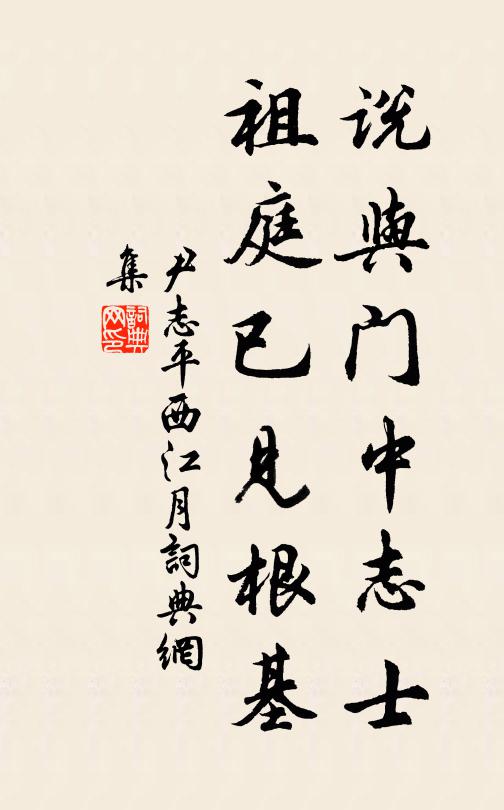 说與门中志士
祖庭已見根基
尹志平西江月詞典網
集
詞典网印